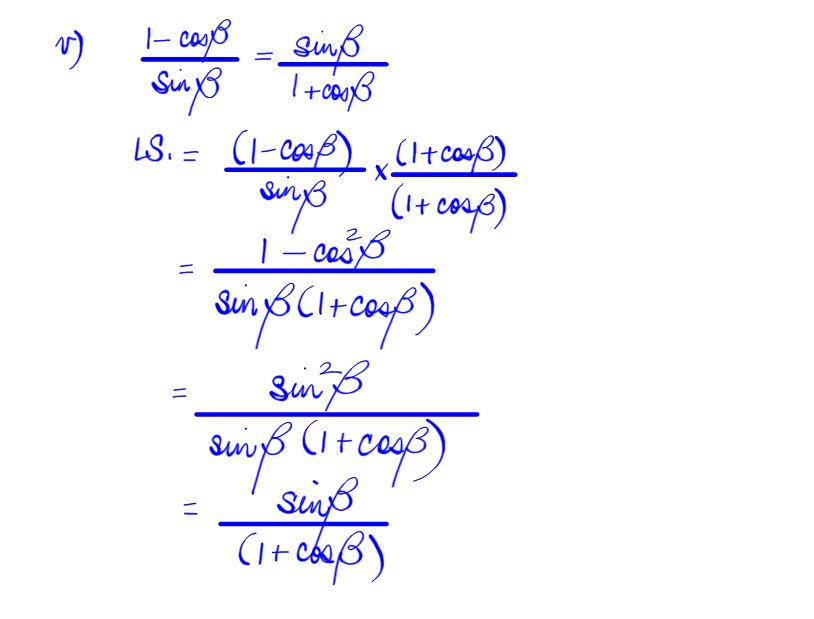 v) (1 - cosβ)/(sinβ) = (sinβ)/(1 + cosβ)
LS. = ((1 - cosβ))/(sinβ) x ((1 + cosβ))/((1 + cosβ))
= (1 - cos²β)/(sinβ(1 + cosβ))
= (sin²β)/(sinβ(1 + cosβ))
= (sinβ)/((1 + cosβ))